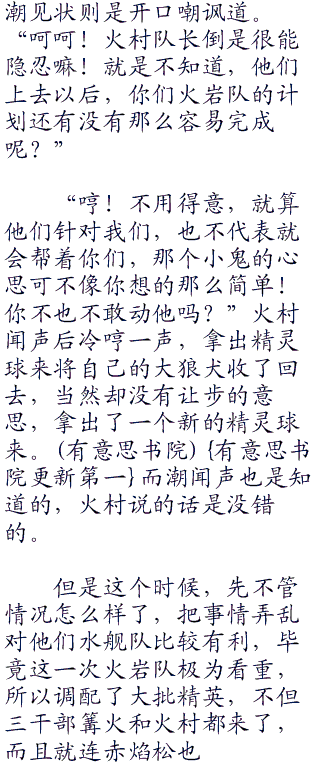 潮见状则是开口嘲讽道。
“呵呵！火村队长倒是很能
隐忍嘛！就是不知道，他们
上去以后，你们火岩队的计
划还有没有那么容易完成
呢？”
“哼！不用得意，就算
他们针对我们，也不代表就
会帮着你们，那个小鬼的心
思可不像你想的那么简单！
你不也不敢动他吗？”火村
闻声后冷哼一声，拿出精灵
球来将自己的大狼犬收了回
去，当然却没有让步的意
思，拿出了一个新的精灵球
来。(有意思书院) {有意思书
院更新第一}而潮闻声也是知
道的，火村说的话是没错
的。
但是这个时候，先不管
情况怎么样了，把事情弄乱
对他们水舰队比较有利，毕
竟这一次火岩队极为看重，
所以调配了大批精英，不但
三干部篝火和火村都来了，
而且就连赤焰松也